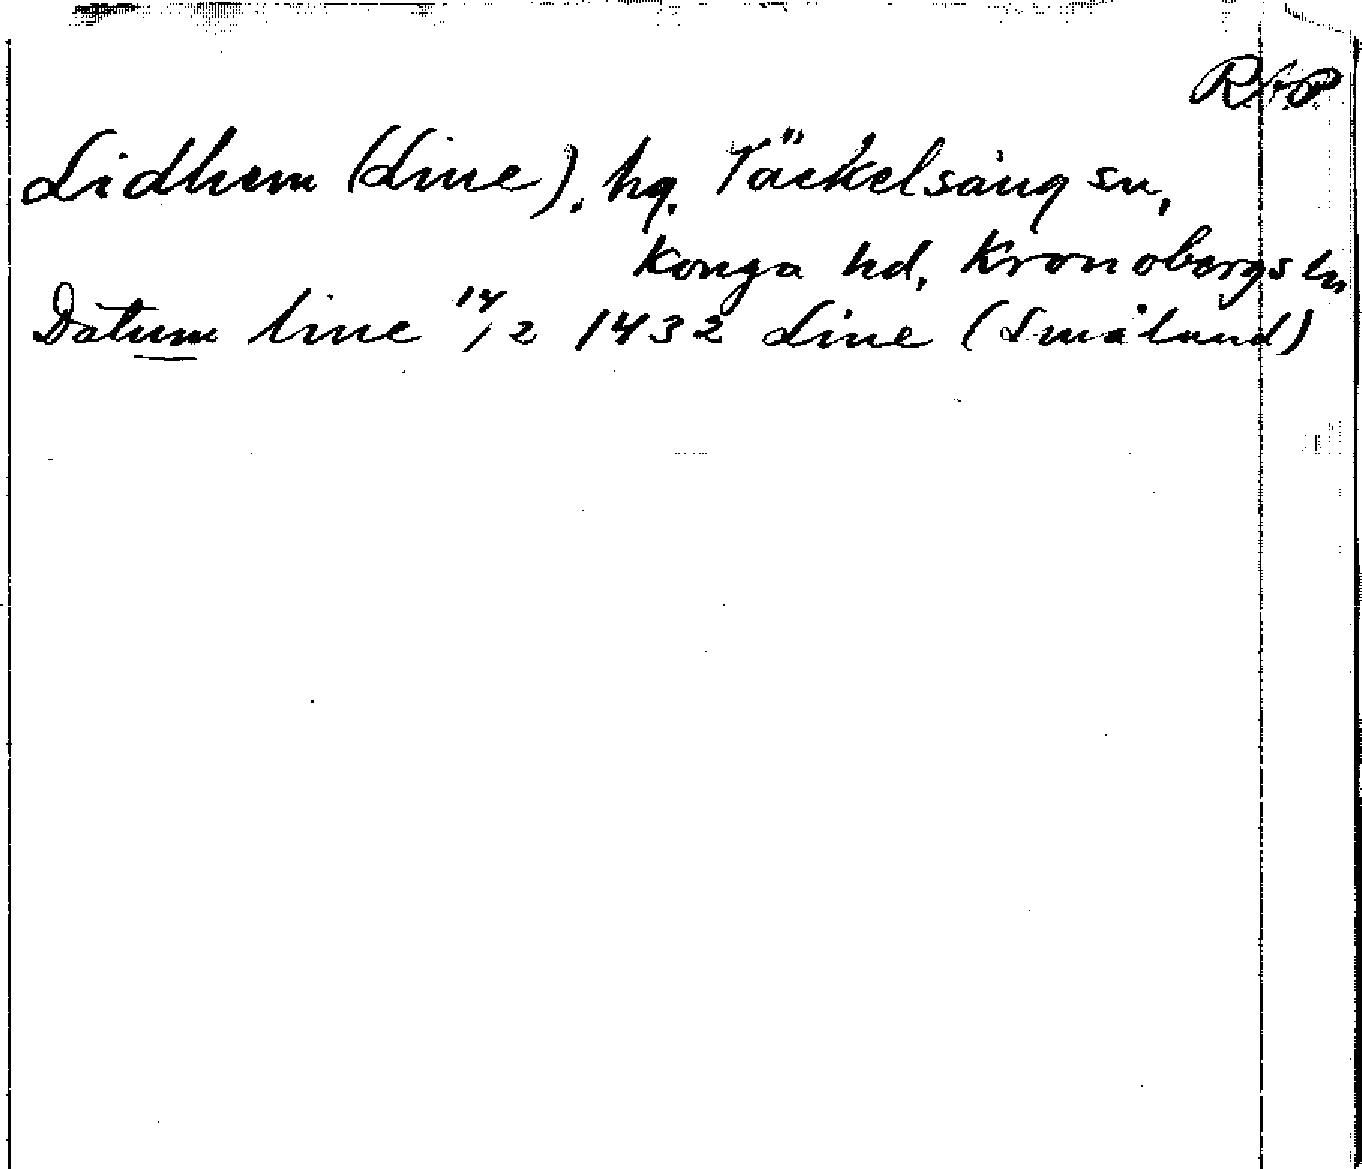 RAP
Lidhem (Line), hg. Väckelsång sn,
Konga hd, Kronobergs ln
Datum line 14/2 1432 Line (Småland)